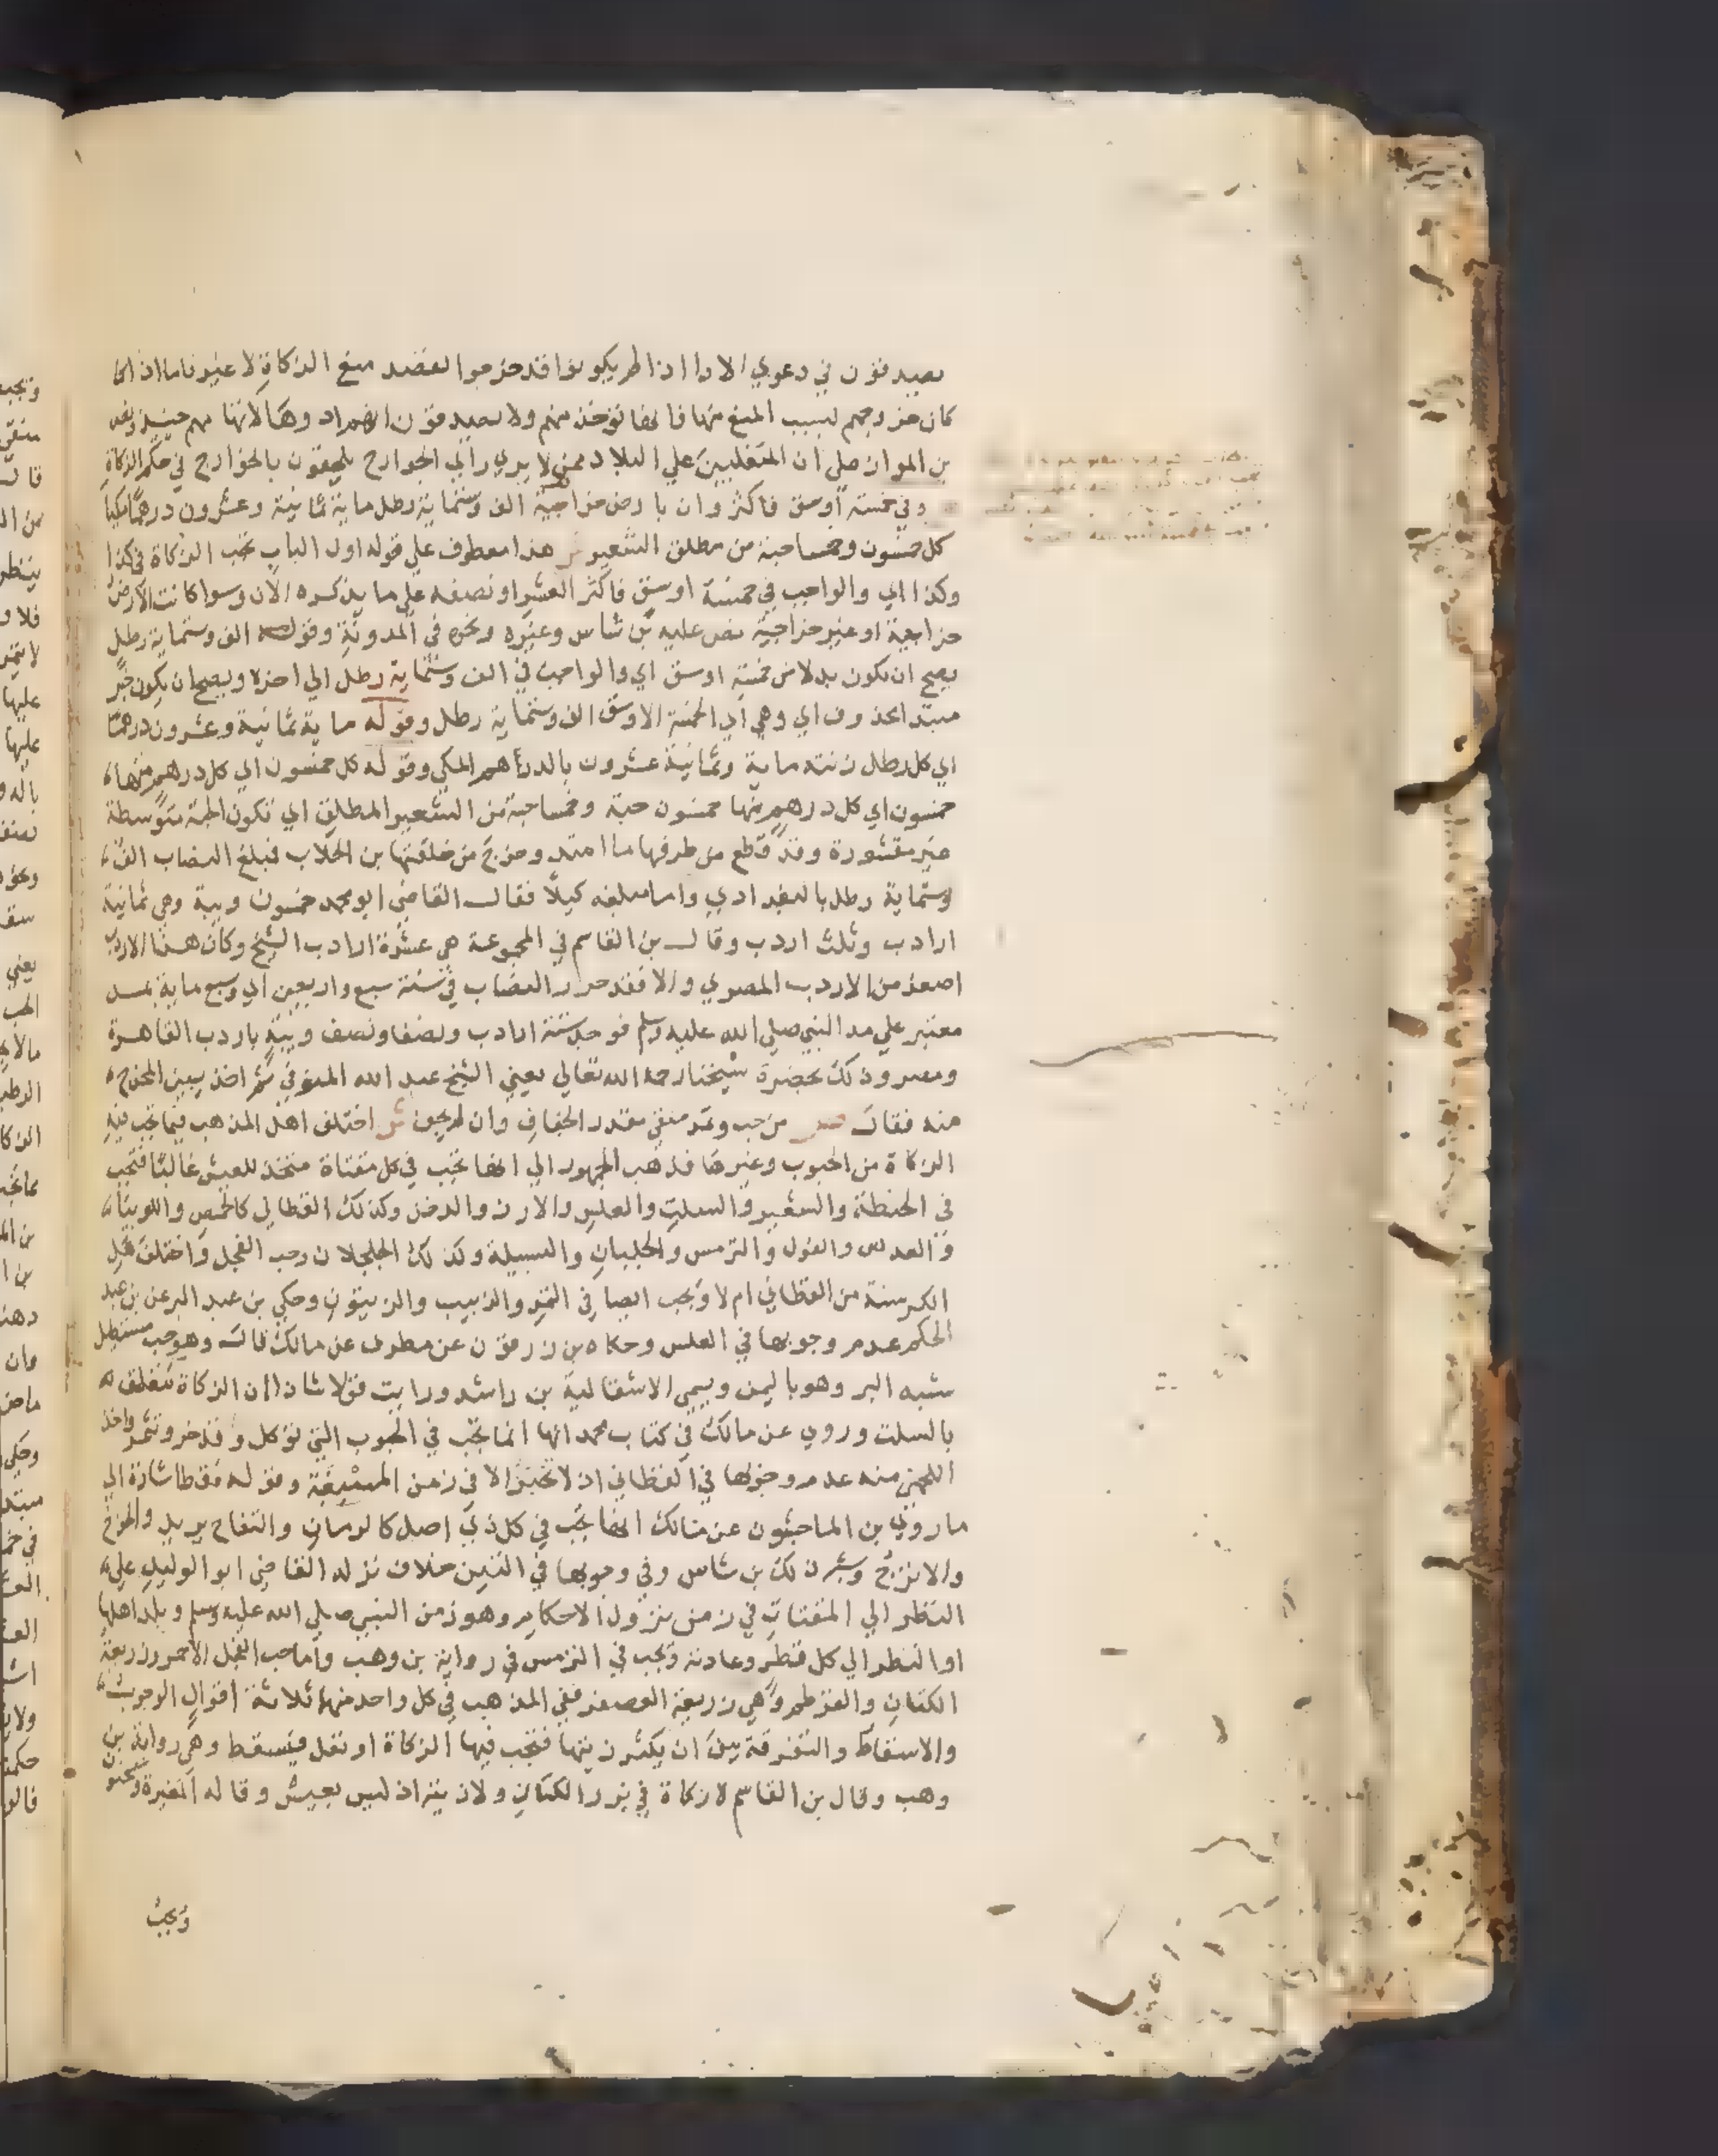 يصدقون في دعوي الادا اذا لم يكونوا قد خرجوا لقصد منع الزكاة لا غير فاما اذا
كان خروجهم لسبب المنع منها فانها توخذ منهم ولا يصدقون انهم ادوها لانها مهم حينيذ
بن المواز صلي ان المتغلبين علي البلاد ممن لا يري راي الخوارج يلحقون بالخوارج في حكم الزكاة
وفي خمسة اوسق فاكثر وان بارض خراجية الف وستماية رطل ماية ثمانية وعشرون درهما مكيا
كل خمسون وخمسا حبة من مطلق الشعير ش هذا معطوف علي قوله اول الباب تجب الزكاة في كذا
وكذا اي والواجب في خمسة اوسق فاكثر العشر او نصفه علي ما يذكره الان وسوا كانت الارض
خراجية او غير خراجية نص عليه بن شاس وغيره ونحوه في المدونة وقوله الف وستماية رطل
يصح ان يكون بدلا من خمسة اوسق اي والواجب في الف وستماية رطل الي اخره ويصح ان يكون خبر
مبتدا محذوف اي وهي اي الخمسة الاوسق الف وستماية رطل وقوله ماية ثمانية وعشرون درهما
اي كل رطل زنته ماية وثمانية عشرون بالدراهم المكي وقوله كل خمسون اي كل درهم منها
خمسون اي كل درهم منها خمسون حبة وخمسا حبة من الشعير المطلق اي تكون الحبة متوسطة
غير مقشورة وقد قطع من طرفها ما امتد وخرج من خلقتها بن الجلاب فبلغ النصاب الف
وستماية رطل بالبغدادي واما مبلغه كيلا فقال القاضي ابو محمد خمسون ويبة وهي ثمانية
ارادب وثلث اردب وقال بن القاسم في المجموعة هي عشرة ارادب الشيخ وكان هذا الاردب
اصغر من الاردب المصري والا فقد حرر النصاب في سنة سبع واربعين اي وسبع ماية بمد
معتبر علي مد النبي صلي الله عليه وسلم فوجد ستة ارادب ونصفا ونصف ويبة باردب القاهرة
ومصر وذلك بحضرة شيخنا رحمه الله تعالي يعني الشيخ عبد الله المنوفي ثم اخذ يبين المخرج
منه فقال ص من حب وتمر منقي مقدر الجفاف وان لم يجف ش اختلف اهل المذهب فيما تجب فيه
الزكاة من الحبوب وغيرها فذهب الجمهور الي انها تجب في كل مقتاة متخذ للعيش غالبا فتجب
في الحنطة والشعير والسلت والعلس والارز والدخن وكذلك القطاني كالحمص واللوبيا
والعدس والفول والترمس والجلبان والبسيلة وكذلك الجلجلان وحب الفجل واختلف هل
الكرسنة من القطاني ام لا وتجب ايضا في التمر والزبيب والزيتون وحكي بن عبد البر عن بن عبد
الحكم عدم وجوبها في العلس وحكاه بن زرقون عن مطرف عن مالك قال وهو حب مستطيل
شبه البر وهو باليمن ويسمي الاشقالية بن راشد ورايت قولا شاذا ان الزكاة تتعلق
بالسلت وروي عن مالك في كتاب محمد انها انما تجب في الحبوب التي توكل وتدخر وتثمر واخذ
اللخمي منه عدم وجوبها في القطاني اذ لا تختبز الا في زمن المسغبة وقوله فقط اشارة الي
ما روي بن الماجشون عن مالك انها تجب في كل ذي اصل كالرمان والتفاح يريد والخوخ
والاترج وشبه ذلك بن شاس وفي وجوبها في التين خلاف نزله القاضي ابو الوليد علي
النظر الي المقتات في زمن نزول الاحكام وهو زمن النبي صلي الله عليه وسلم وبلد اهلها
او النظر الي كل قطر وعادته وتجب في الترمس في رواية بن وهب واما حب الفجل الاحمر وزريعة
الكتان والقرطم وهي زريعة العصفر ففي المذهب في كل واحد منها ثلاثة اقوال الوجوب
والاسقاط والتفرقة بين ان يكثر زيتها فتجب فيها الزكاة او تقل فيسقط وهي رواية بن
وهب وقال بن القاسم لا زكاة في بزر الكتان ولا زيته اذ ليس بعيش وقاله المغيرة وسحنون
وتجب